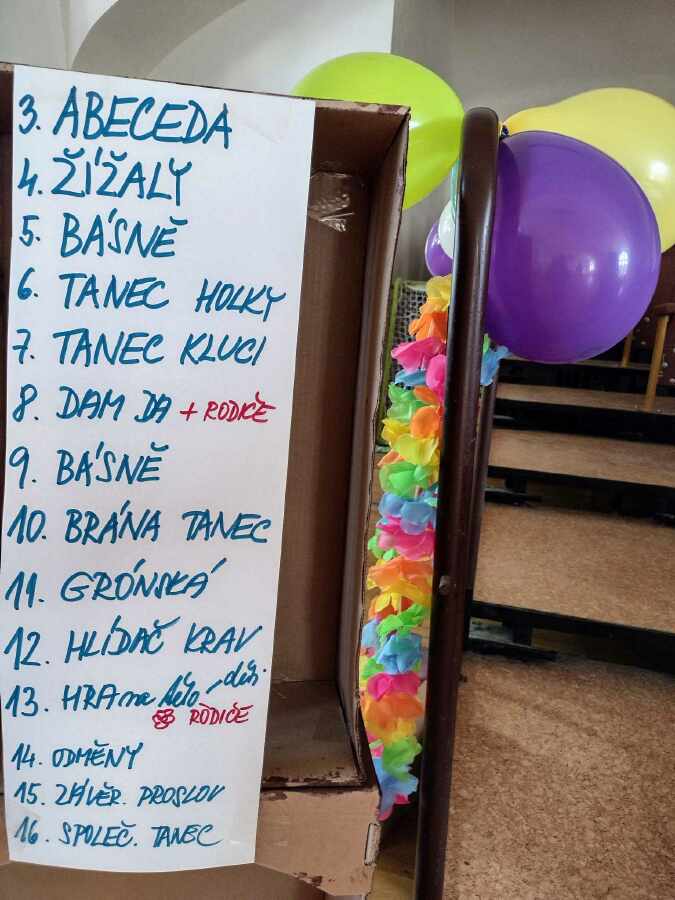 3. ABECEDA
4. ŽÍŽALY
5. BÁSNĚ
6. TANEC HOLKY
7. TANEC KLUCI
8. DAM DA + RODIČE
9. BÁSNĚ
10. BRÁNA TANEC
11. GRÓNSKÁ
12. HLÍDAČ KRAV
13. HRA na tělo - děti
RODIČE
14. ODMĚNY
15. ZÁVĚR. PROSLOV
16. SPOLEČ. TANEC